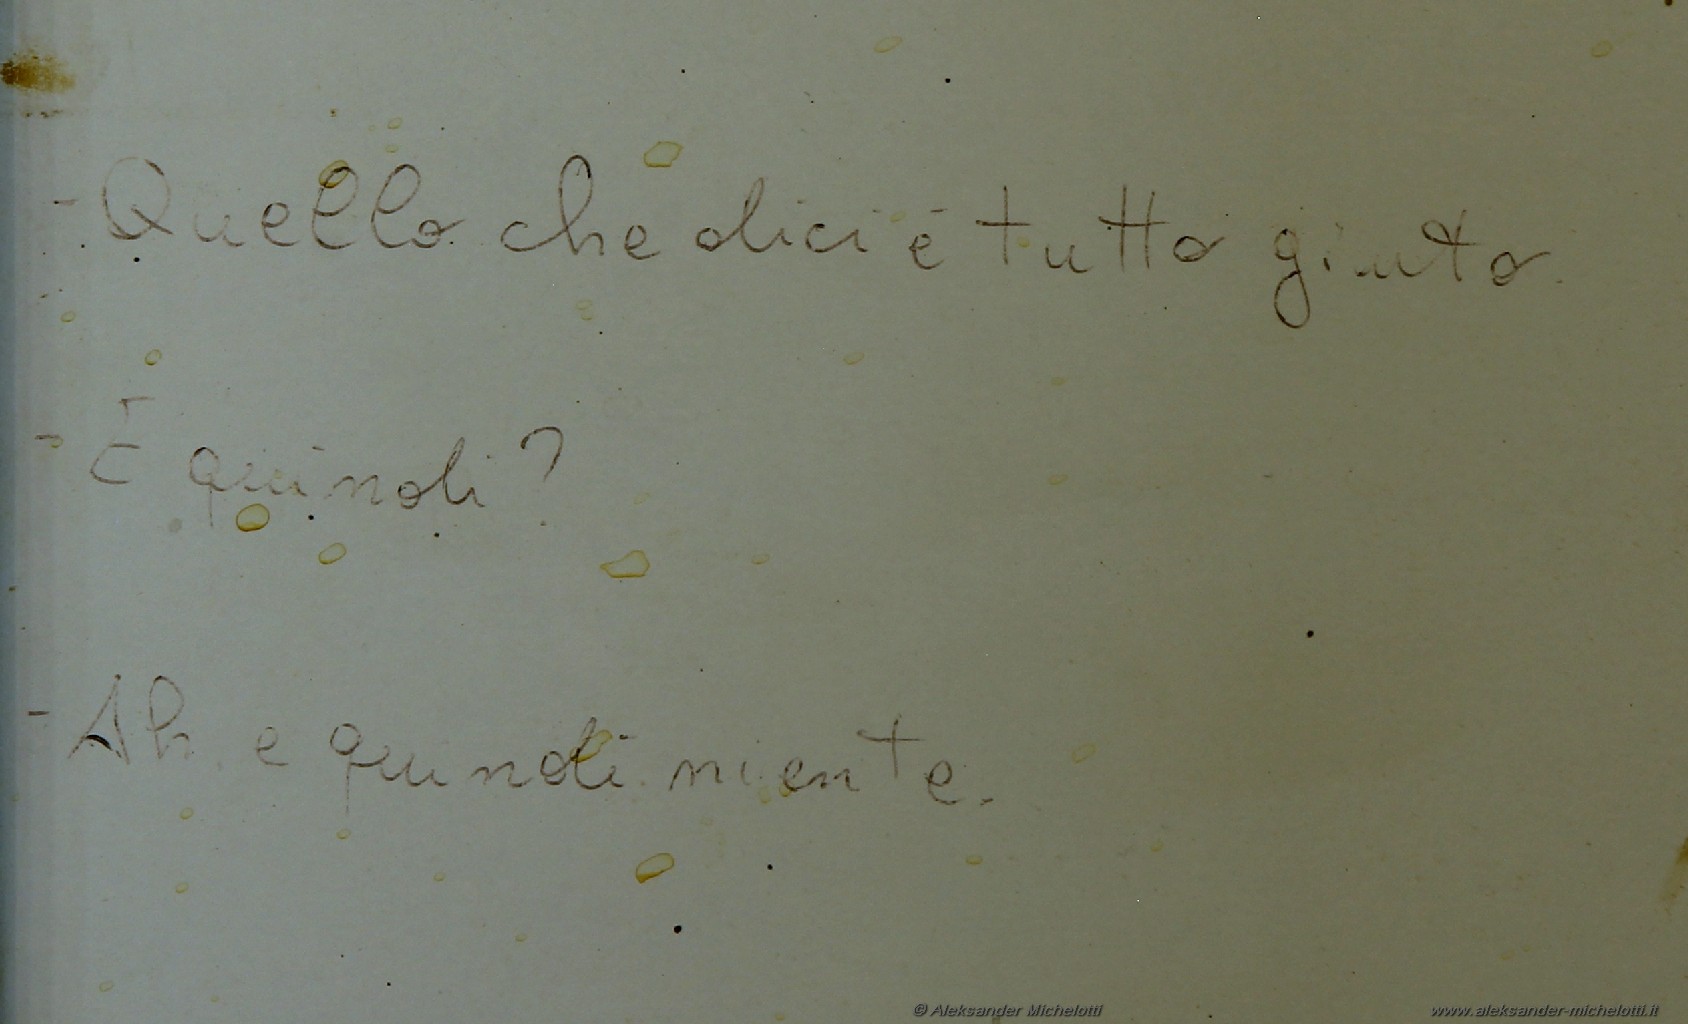 - Quello che dici è tutto giusto.
- È quindi?
- Ah e quindi niente.
© Aleksander Michelotti
www.aleksander-michelotti.it